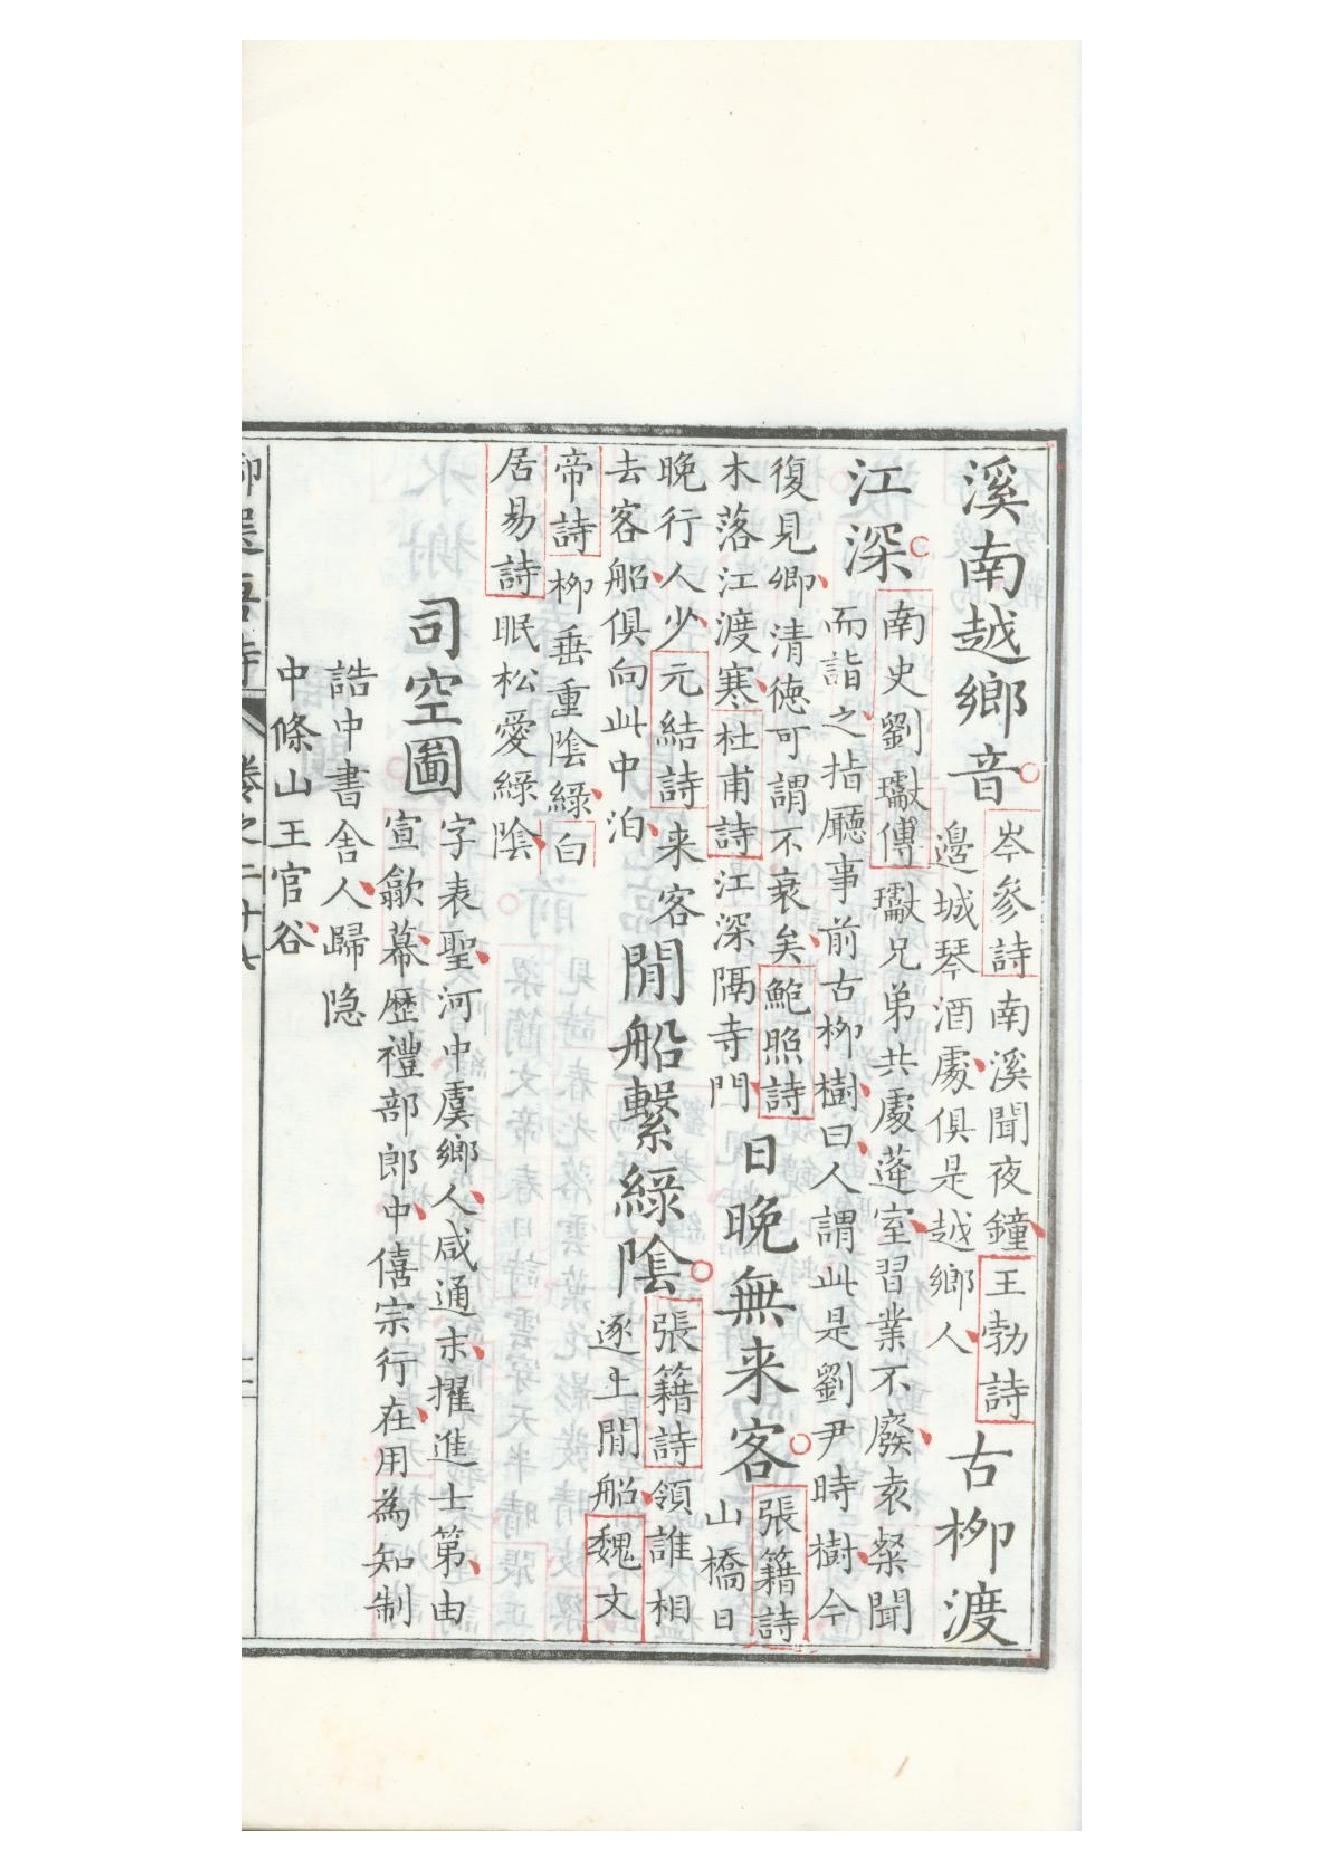 溪南越鄉音
岑參詩南溪聞夜鐘王勃詩
邊城琴酒處俱是越鄉人
古柳渡
江深
南史劉瓛傅瓛兄弟共處蓬室習業不廢袁粲聞
而詣之指廳事前古柳樹曰人謂此是劉尹時樹今
復見卿清徳可謂不衰矣鮑照詩
木落江渡寒杜甫詩江深隔寺門
日晚無来客
張籍詩
山橋日
晚行人少元結詩来客
去客船俱向此中泊
閒船繫綠陰
張籍詩領誰相
逐土閒船魏文
帝詩柳垂重陰綠白
居易詩眠松愛綠陰
司空圖
字表聖河中虞鄉人咸通末擢進士第由
宣歙幕歷禮部郎中僖宗行在用為知制
誥中書舍人歸隐
中條山王官谷